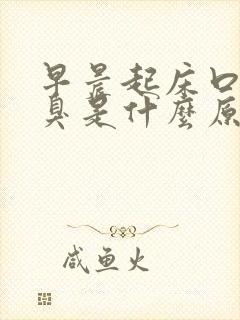 早晨起床口
臭是什麼原
咸鱼火